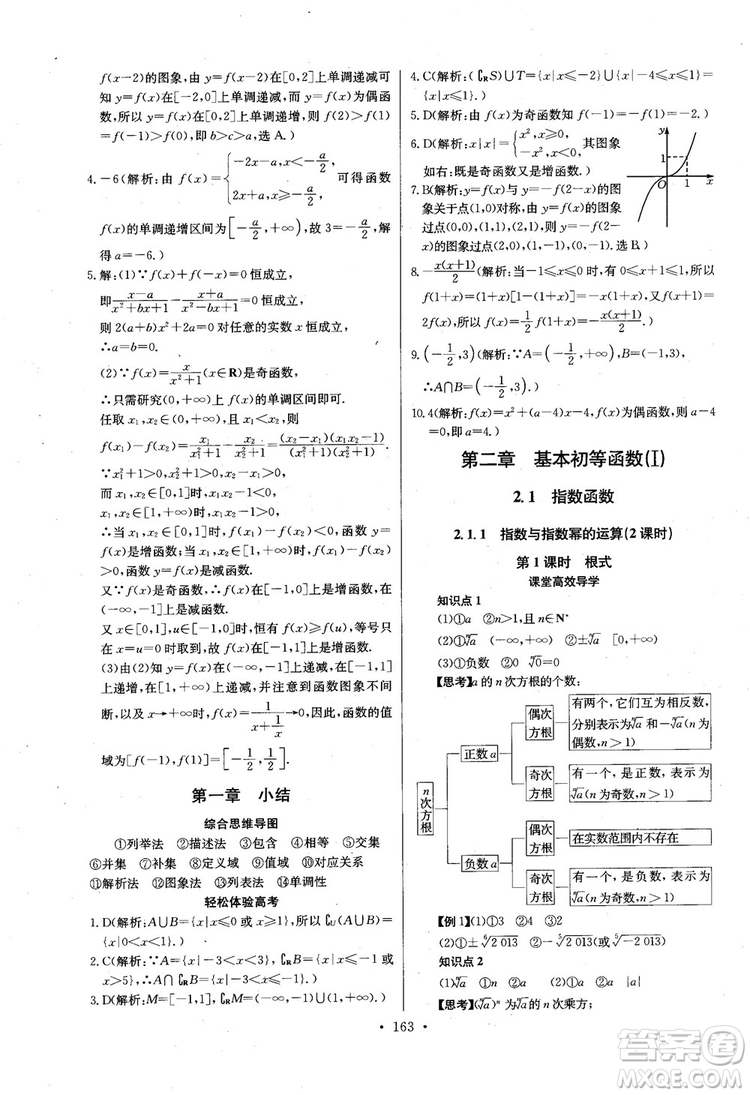 f(x-2)的图象,由 y=f(x)在[0,2]上单调递减可
知 y=f(x)在[-2,0]上单调递增,而 y=f(x)为偶函
数,所以 y=f(x)在[0,2]上单调递减,又 f(-2)=
f(2)>f(1)>f(0),即 b>c>a,选 A.)
4.-6(解析:由 f(x)={-2x-a,x<-a/2 2x+a,x≥-a/2 可得函数
f(x)的单调递增区间为[-a/2,+∞),故 3=-a/2,解
得 a=-6.)
5.解:(1)∵f(x)+f(-x)=0 恒成立,
即(x-a)/(x²+bx+1)+(-x-a)/(x²-bx+1)=0 恒成立,
则 2(a+b)x²+2a=0 对任意的实数 x 恒成立.
∴a=b=0.
(2)∵f(x)=x/(x²+1)(x∈R)是奇函数,
∴只需研究(0,+∞)上的单调区间即可.
任取 x₁,x₂∈(0,+∞),且 x₁<x₂,则
f(x₁)-f(x₂)=x₁/(x₁²+1)-x₂/(x₂²+1)=(x₂-x₁)(x₁x₂-1)/((x₁²+1)(x₂²+1))
∵x₁²+1>0,x₂²+1>0,x₂-x₁>0,
而 x₁,x₂∈[0,1]时,x₁x₂-1<0,
x₁,x₂∈[1,+∞)时,x₁x₂-1>0,
∴当 x₁,x₂∈[0,1]时,f(x₁)-f(x₂)<0,函数 y=
f(x)是增函数;
当 x₁,x₂∈[1,+∞)时,f(x₁)-f(x₂)>0,函数 y=
f(x)是减函数.
又∵f(x)是奇函数,∴f(x)在[-1,0]上是增函数,在
(-∞,-1]上是减函数.
又∵x∈[0,1],u∈[-1,0]时,恒有 f(x)≥f(u),等号只
在 x=u=0 时取到,故 f(x)在[-1,1]上是增函数.
(3)由(2)知函数 f(x)在(-∞,-1)上递减,在[-1,1]
上递增,在[1,+∞)上递减,从而该函数图象不间断
时,以及 x→+∞时,f(x)=1/(x+1/x)→0,因此,函数的值
域为[f(-1),f(1)]=[-1/2,1/2].
第一章 小结
综合思维导图
①列举法 ②描述法 ③包含 ④相等 ⑤交集
⑥并集 ⑦补集 ⑧定义域 ⑨值域 ⑩对应关系
⑪解析法 ⑫图象法 ⑬列表法 ⑭单调性
轻松体验高考
1.D(解析:A∪B={x|x≤0 或 x≥1},所以 ∁U(A∪B)=
{x|0<x<1}.)
2.C(解析:∵A={x|-3<x<3},∁RB={x|x≤-1 或
x>5},∴A∩∁RB={x|-3<x≤-1}.)
3.D(解析:M=[-1,1],∁RM=(-∞,-1)∪(1,+∞).)
4.C(解析:(∁RS)∪T={x|x≤-2}∪{x|-4≤x≤1}=
{x|x≤1}.)
5.D(解析:由 f(x)为奇函数知 f(-1)=-f(1)=-2.)
6.D(解析:x|x|={x²,x≥0, -x²,x<0,其图象
如右:既是奇函数又是增函数.)
y
1
O 1 x
7.B(解析:f(x)与 y=-f(2-x)的图
象关于点(1,0)对称,由 f(x)的图象
过点(0,0),(1,1),则 y=-f(2-x)
的图象过点(2,0),(1,-1).选 B.)
8.-x(x+1)/2(解析:∵-1≤x≤0,∴0≤x+1≤1,所以
f(1+x)=(1+x)[1-(1+x)]=-x(x+1),又 f(x+1)=
2f(x),所以 f(x)=1/2f(x+1)=-x(x+1)/2.)
9.(-1/2,3)(解析:∵A=(-1/2,+∞),B=(-1,3),
∴A∩B=(-1/2,3).)
10.4(解析:f(x)=x²+(a-4)x-4a 为偶函数,则 a-4
=0,即 a=4.)
第二章 基本初等函数(Ⅰ)
2.1 指数函数
2.1.1 指数与指数幂的运算(2课时)
第1课时 根式
课堂高效导学
知识点 1
(1)①a ②n>1,且 n∈N*
(2)①ⁿ√a (-∞,+∞) ②±ⁿ√a [0,+∞)
(3)①负数 ②0 ⁿ√0=0
【思考】a 的 n 次方根的个数:
n次方根
正数 a
偶次方根
有两个,它们互为相反数,
分别表示为ⁿ√a和-ⁿ√a(n为
偶数,n>1)
奇次方根
有一个,是正数,表示为
ⁿ√a(n为奇数,n>1)
负数 a
偶次方根
在实数范围内不存在
奇次方根
有一个,是负数,表示为
ⁿ√a(n为奇数,n>1)
【例 1】(1)①3 ②4 ③2
(2)①±⁶√2 013 ②⁵√2 013 ③⁵√-2 013
知识点 2
(1)ⁿ√a ②n a (2)a ②a |a|
【思考】(ⁿ√a)ⁿ 为先开方,再 n 次乘方;
· 163 ·
答案圈
MXQE.COM